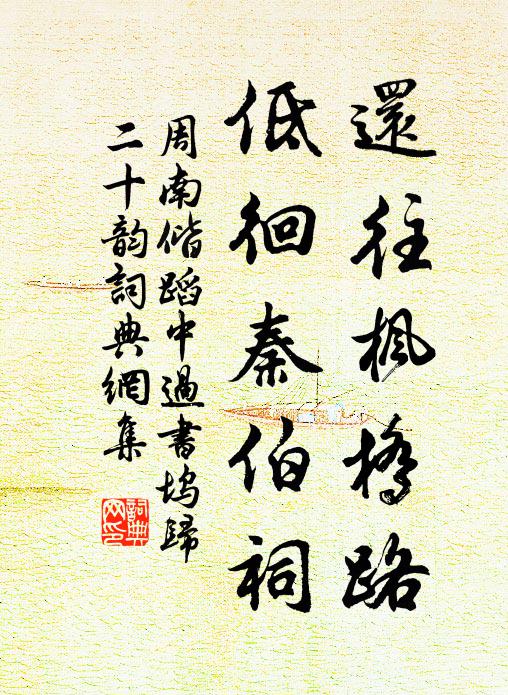 還往枫橋路
低徊秦伯祠
周南偕蹈中過書坞歸
二十韵詞典網集
詞典
网印